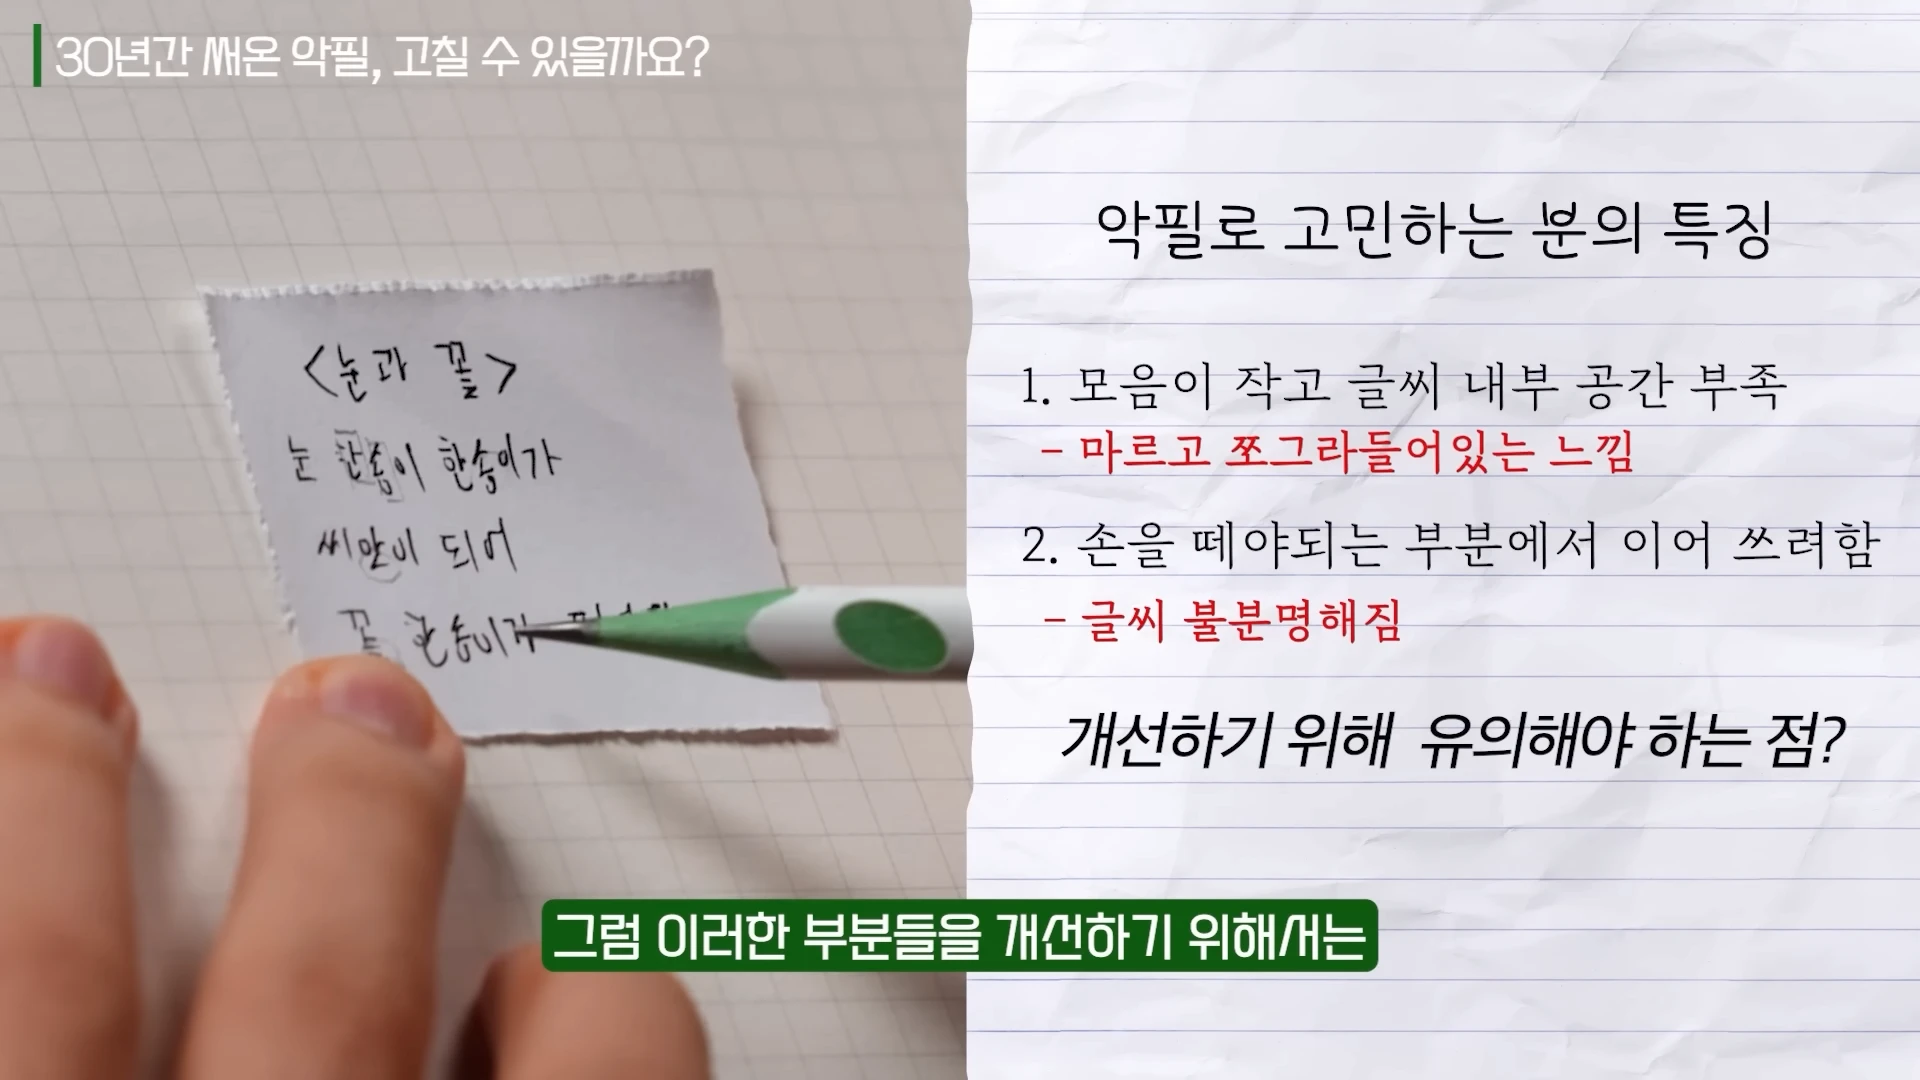 30년간 써온 악필, 고칠 수 있을까요?
<눈과 꽃>
눈 한송이 한송이가
씨앗이 되어
꽃 한송이가
악필로 고민하는 분의 특징
1. 모음이 작고 글씨 내부 공간 부족
- 마르고 쪼그라들어있는 느낌
2. 손을 떼야되는 부분에서 이어 쓰려함
- 글씨 불분명해짐
개선하기 위해 유의해야 하는 점?
그럼 이러한 부분들을 개선하기 위해서는